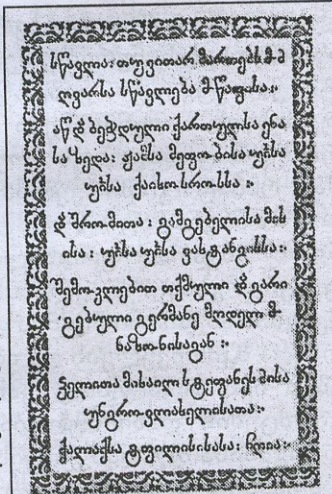 სწავლა: თუ ვითარ მართებს მ~მ
ღვარსა სწავლება მ~წაფისა:
აწ დ~ ბეჭდული ქართულსა ენა
სა ზედა: ჟამსა მეფობისა უ~ისა
უ~ისა ქაიხოსროსსა :
დ~ შრომითა : გამგებელისა მის
ისა : უ~ისა უ~ისა ვახტანგისსა:
შემოკლებით თქმული დ~ გარი
გებული გერმანე მღდელ მ~
ნაზონისაგან :
ჴელითა მიხაილ სტეფანეს ძისა
უნგროვლახელისათა:
ქალაქსა ტფილისისასა: ჩღია: